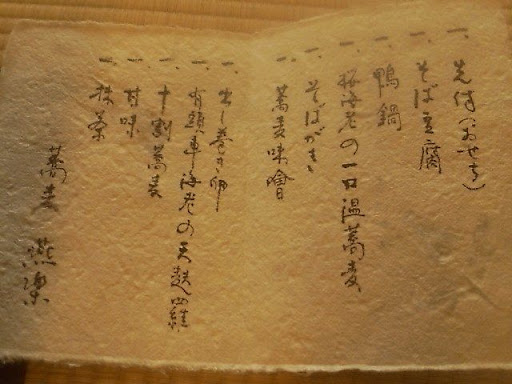 一、先付(おせち)
一、そば豆腐
一、鴨鍋
一、桜海老の一口温蕎麦
一、そばがき
一、蕎麦味噌
一、出し巻き卵
一、有頭車海老の天麩羅
一、十割蕎麦
一、甘味
一、抹茶
蕎麦